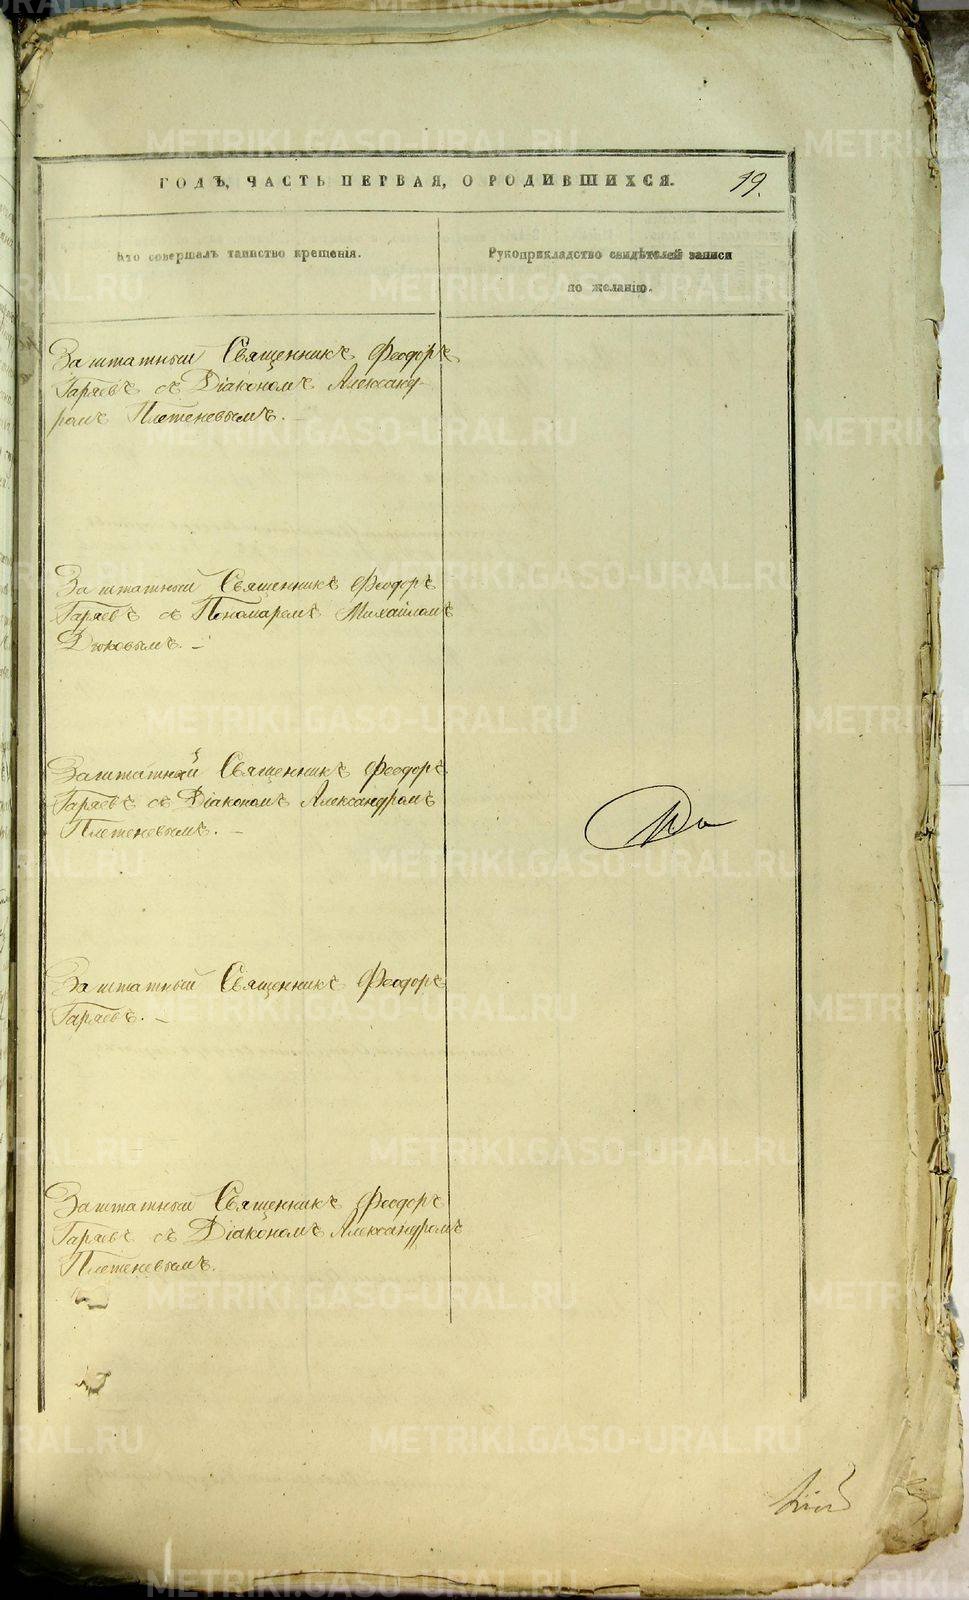 ГОДЪ, ЧАСТЬ ПЕРВАЯ, О РОДИВШИХСЯ.
19.
Кто совершалъ таинство крещенія.
Рукоприкладство свидѣтелей записи
по желанію.
Заштатный Священникъ Феодоръ
Гаряевъ съ Діакономъ Александ-
ромъ Плетеневымъ.
Заштатный Священникъ Феодоръ
Гаряевъ съ Пономаремъ Михаиломъ
Дюковымъ.
Заштатный Священникъ Феодоръ
Гаряевъ съ Діакономъ Александромъ
Плетеневымъ.
Заштатный Священникъ Феодоръ
Гаряевъ.
Заштатный Священникъ Феодоръ
Гаряевъ съ Діакономъ Александромъ
Плетеневымъ.
METRIKI.GASO-URAL.RU